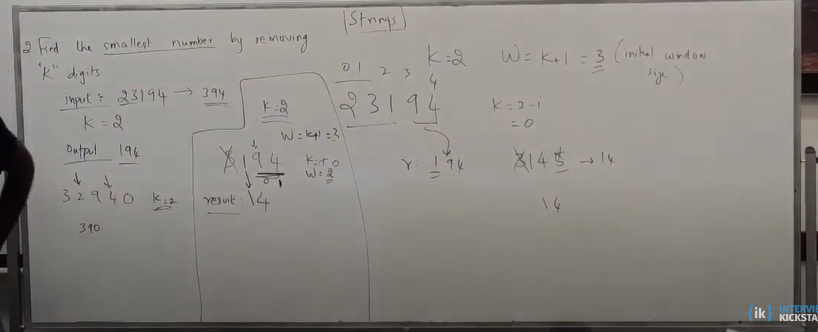 Strings
2 Find the smallest number by removing
"K" digits.
input : 23194 → 394
K = 2
Output : 194
3 2 9 4 0 K=2
390
K=2
W = k+1 = 3
3 1 9 4
W= 2
0 1
result: 14
0 1 2 3 4
2 3 1 9 4
K=2
W = k+1 = 3 (initial window size)
K = 2-1
= 0
r: 1 9 4
3 1 4 5 → 14
14
{ik} INTERVIE
KICKSTA